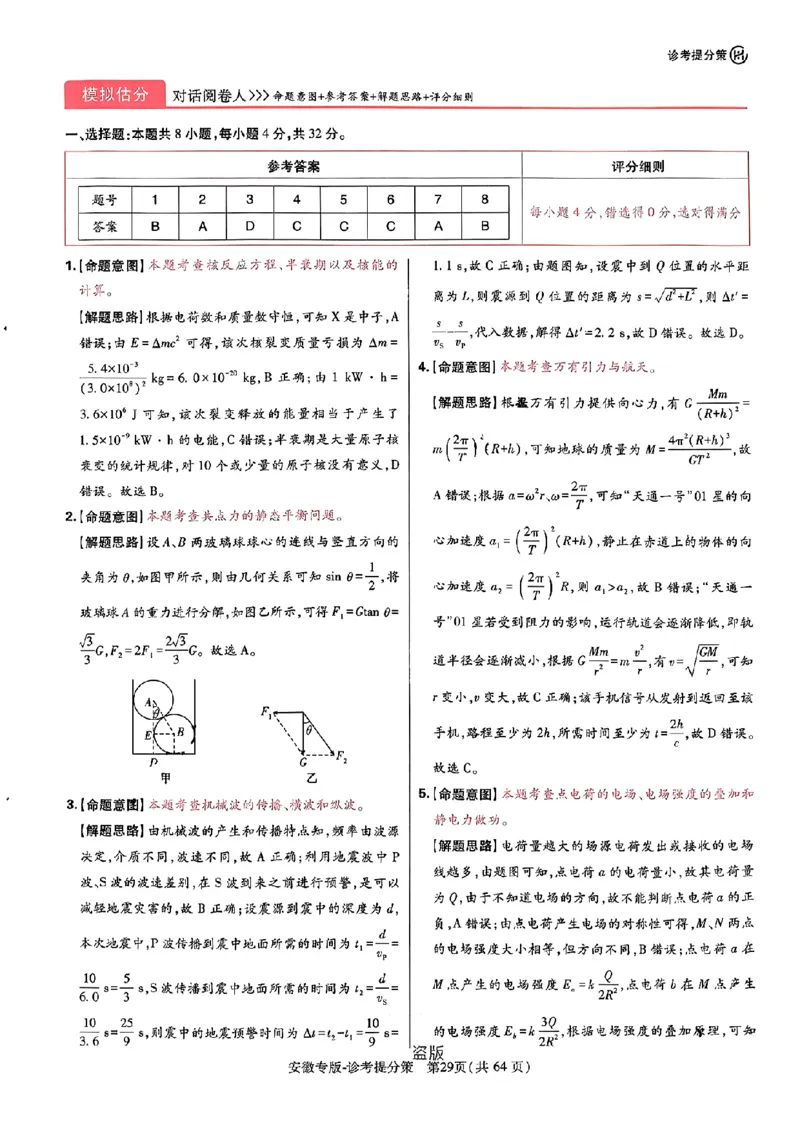 诊考提分策
模拟估分 对话阅卷人>>>命题意图+参考答案+解题思路+评分细则
一、选择题:本题共8小题,每小题4分,共32分。
参考答案 评分细则
题号 1 2 3 4 5 6 7 8
答案 B A D C C C A B
每小题4分,错选得0分,选对得满分
1.【命题意图】本题考查核反应方程、半衰期以及核能的
计算。
【解题思路】根据电荷数和质量数守恒,可知X是中子,A
错误;由 E=Δmc² 可得,该次核裂变质量亏损为 Δm=
5.4×10⁻³/(3.0×10⁸)² kg=6.0×10⁻²⁰ kg,B正确;由1 kW·h=
3.6×10⁶ J可知,该次裂变释放的能量相当于产生了
1.5×10⁻⁹ kW·h的电能,C错误;半衰期是大量原子核
衰变的统计规律,对10个或少量的原子核没有意义,D
错误。故选B。
2.【命题意图】本题考查共点力的静态平衡问题。
【解题思路】设A、B两玻璃球球心的连线与竖直方向的
夹角为θ,如图甲所示,则由几何关系可知 sin θ=1/2,将
玻璃球A的重力进行分解,如图乙所示,可得F₁=Gtan θ=
√3/3 G,F₂=2F₁=2√3/3 G。故选A。
A
θ
E B
D
甲
F₁
θ
G F₂
乙
3.【命题意图】本题考查机械波的传播、横波和纵波。
【解题思路】由机械波的产生和传播特点知,频率由波源
决定,介质不同,波速不同,故A正确;利用地震波中P
波、S波的波速差别,在S波到来之前进行预警,是可以
减轻地震灾害的,故B正确;设震源到震中的深度为d,
本次地震中,P波传播到震中地面所需的时间为 t₁=d/vP=
10/6.0 s=5/3 s,S波传播到震中地面所需的时间为 t₂=d/vS=
10/3.6 s=25/9 s,则震中的地震预警时间为 Δt=t₂-t₁=10/9 s=
1.1 s,故C正确;由题图知,设震中到Q位置的水平距
离为L,则震源到Q位置的距离为 s=√(d²+L²),则 Δt′=
s/vS-s/vP,代入数据,解得 Δt′=2.2 s,故D错误。故选D。
4.【命题意图】本题考查万有引力与航天。
【解题思路】根据万有引力提供向心力,有 G Mm/(R+h)²=
m(2π/T)²(R+h),可知地球的质量为 M=4π²(R+h)³/GT²,故
A错误;根据 a=ω²r、ω=2π/T,可知“天通一号”01星的向
心加速度 a₁=(2π/T)²(R+h),静止在赤道上的物体的向
心加速度 a₂=(2π/T)²R,则 a₁>a₂,故B错误;“天通一
号”01星若受到阻力的影响,运行轨道会逐渐降低,即轨
道半径会逐渐减小,根据 G Mm/r²=m v²/r,有 v=√(GM/r),可知
r变小,v变大,故C正确;该手机信号从发射到返回至该
手机,路程至少为2h,所需时间至少为 t=2h/c,故D错误。
故选C。
5.【命题意图】本题考查点电荷的电场、电场强度的叠加和
静电力做功。
【解题思路】电荷量越大的场源电荷发出或接收的电场
线越多,由题图可知,点电荷a的电荷量小,故其电荷量
为Q,由于不知道电场的方向,故不能判断点电荷a的正
负,A错误;由点电荷产生电场的对称性可得,M、N两点
的电场强度大小相等,但方向不同,B错误;点电荷a在
M点产生的电场强度 Eₐ=k Q/2R²,点电荷b在M点产生
的电场强度 E_b=k 3Q/2R²,根据电场强度的叠加原理,可知
盗版
安徽专版-诊考提分策 第29页(共64页)